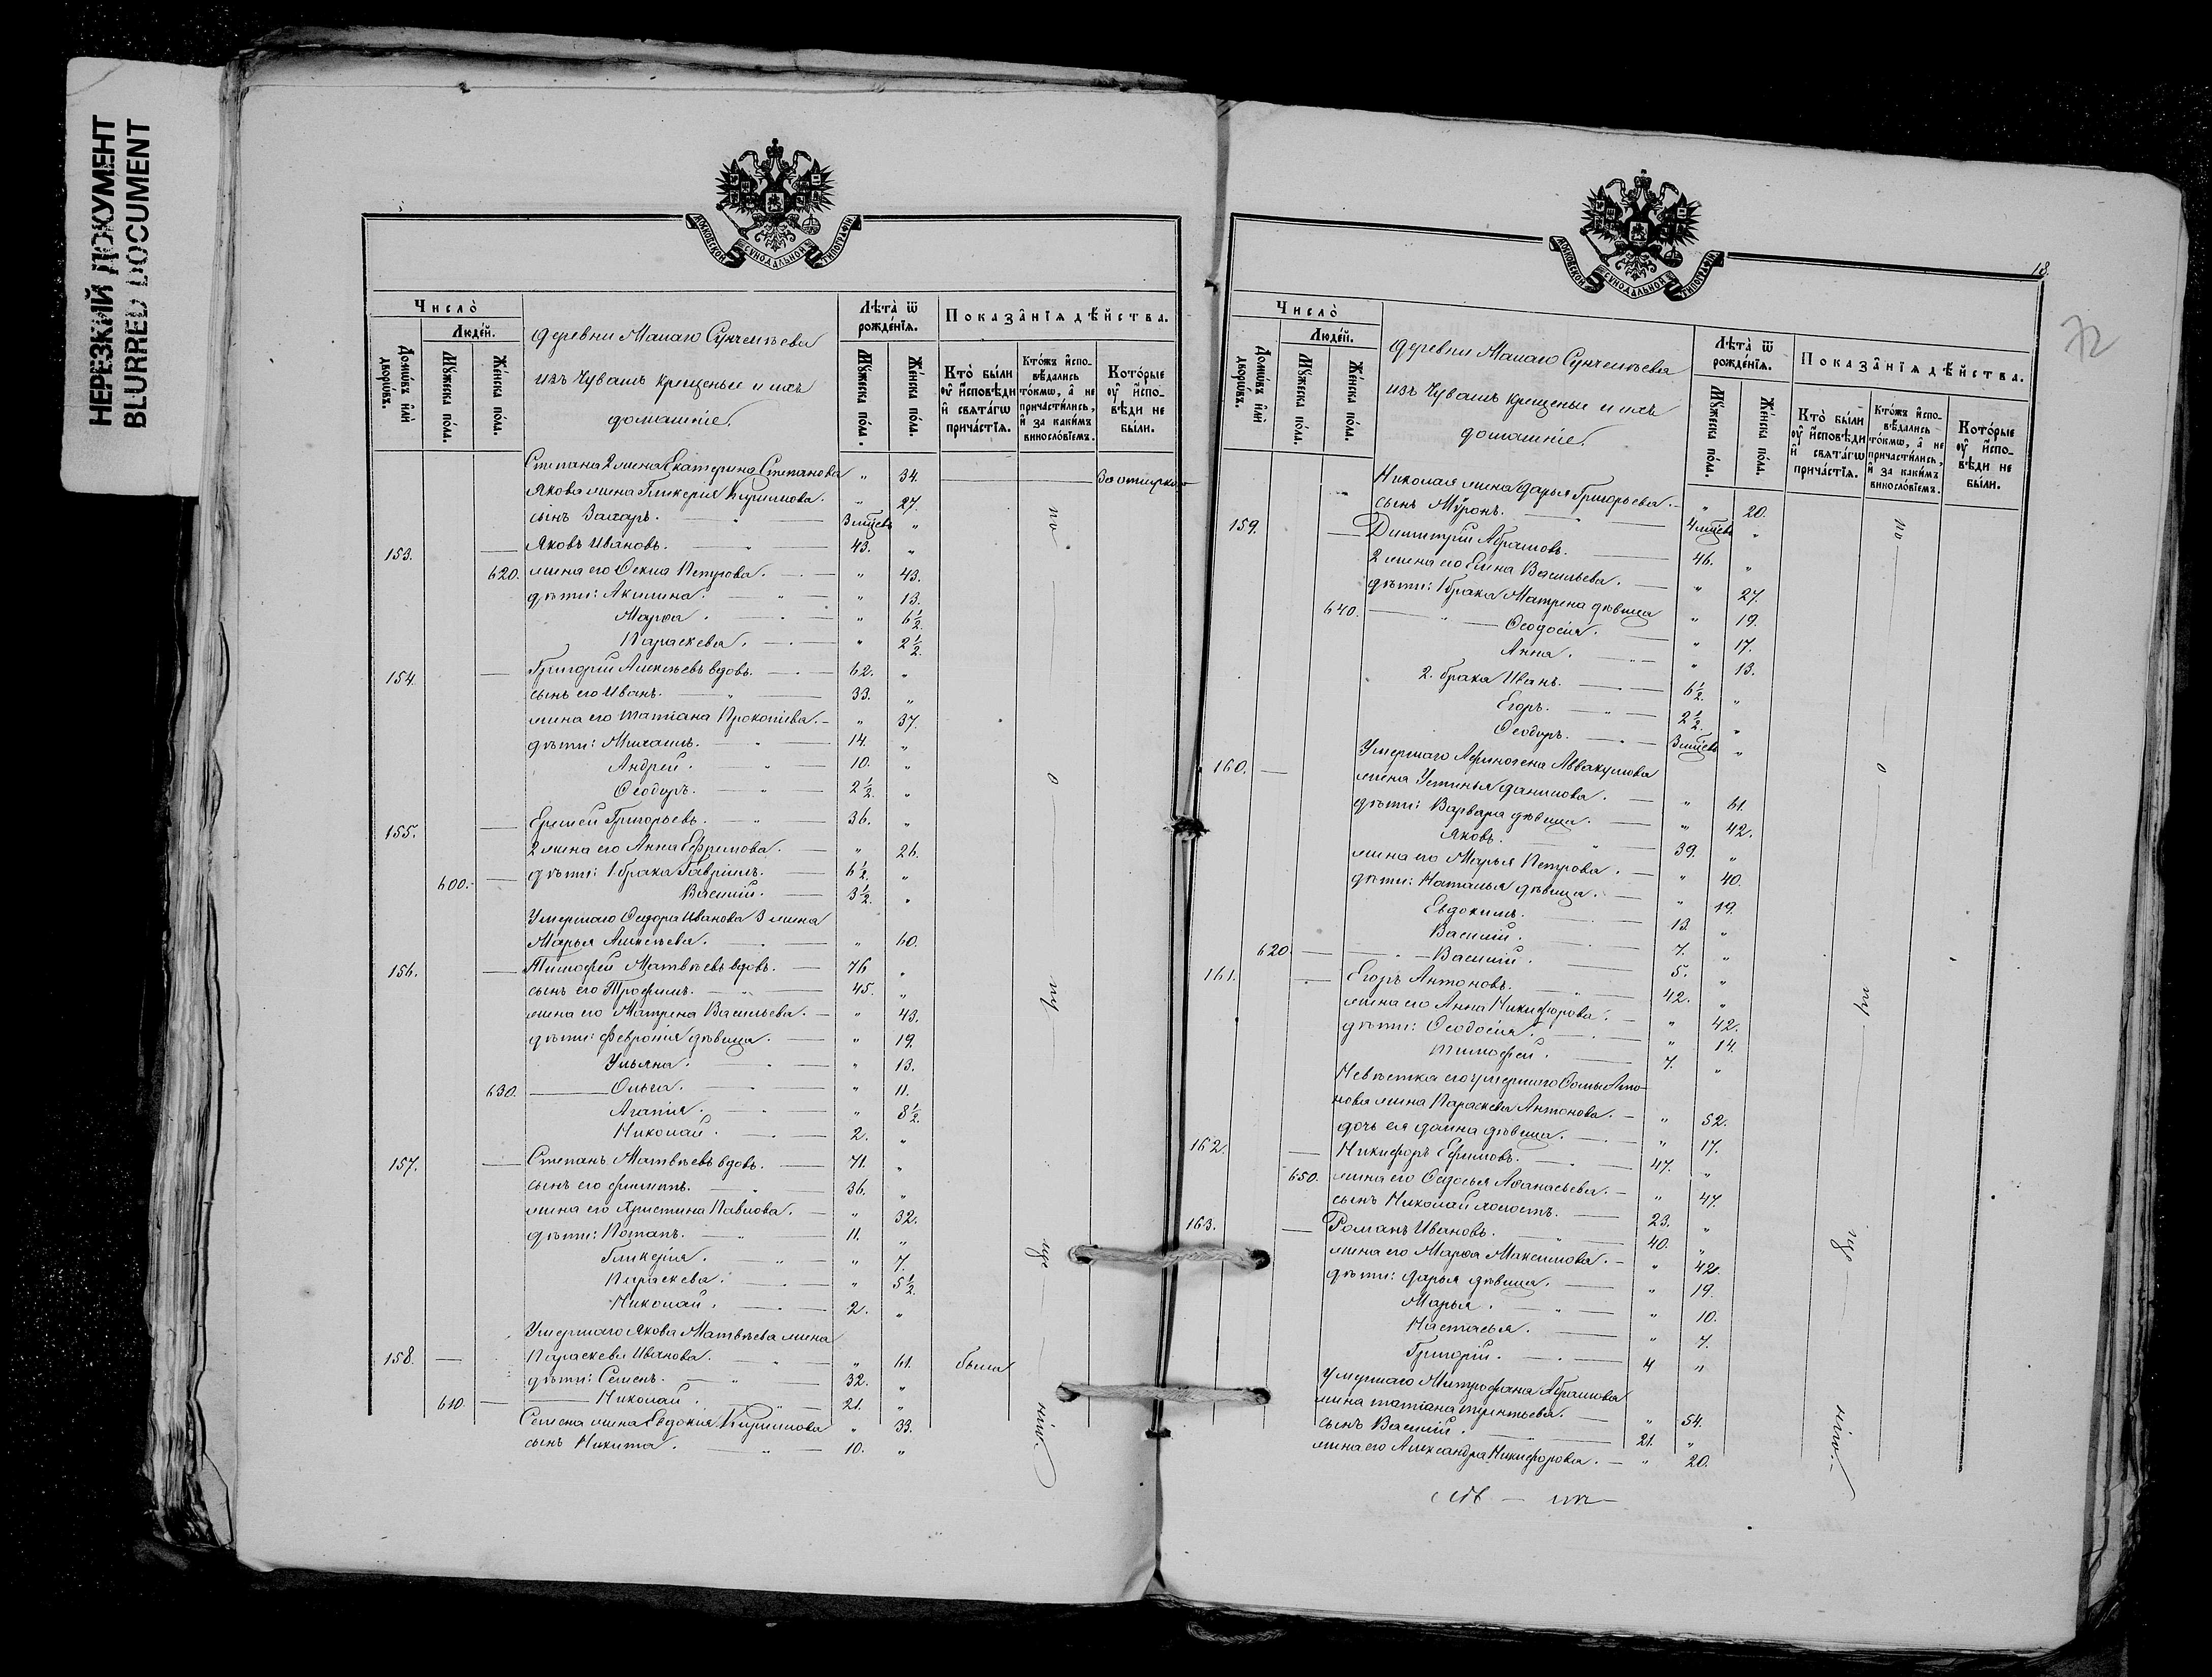 НЕРЕЗКИЙ ДОКУМЕНТ
BLURRED DOCUMENT
МОСКОВСКОЙ СѴНОДАЛЬНОЙ ТИПОГРАФІИ
Число̀
Людей.
Домѡвъ и҆лѝ дворѡвъ.
Мꙋ́жеска по́ла.
Же́нска по́ла.
деревни Малаго Сунчелѣева
изъ Чувашъ крещеные и ихъ
домашніе.
Лѣта̀ ѿ рожде́нїѧ.
Мꙋ́жеска по́ла.
Же́нска по́ла.
Показа̂нїѧ дѣ́йства.
Кто̀ бы́ли ᲂу҆ и҆сповѣди и҆ свѧта́гѡ прича́стїѧ.
Кто́жъ и҆споⸯвѣдались то́кмѡ, а҆ не причасти́лись, и҆ за каки́мъ винослові́емъ.
Кото́рые ᲂу҆ и҆сповѣди не бы́ли.
Степана 2 жена Екатерина Степанова " 34. За отлучкою
Якова жена Гликерія Кирилова. " 27.
сынъ Захаръ. 3 мѣсѧ "
153. Яковъ Ивановъ. 43. "
620. жена его Ѳекла Петрова. " 43.
дѣти: Акилина. " 13.
Марѳа. " 6 1/2.
Параскева. " 2 1/2.
154. Григорій Алексѣевъ вдовъ. 62. "
сынъ его Иванъ. 33. "
жена его Татіана Прокопіева. " 37.
дѣти: Михаилъ. 14. "
Андрей. 10. "
Ѳеодоръ. 2 1/2. "
155. Еремей Григорьевъ. 36. "
2 жена его Анна Ефремова. " 26.
600. дѣти: 1 брака Гавріилъ. 6 1/2. "
Василій. 3 1/2. "
Умершаго Ѳедора Иванова 3 жена
Марья Алексѣева. " 60.
156. Тимофей Матвѣевъ вдовъ. 76 "
сынъ его Трофимъ. 45. "
жена его Матрена Васильева. " 43.
дѣти: Февронія дѣвица. " 19.
Ульяна. " 13.
630. Ольга. " 11.
Агапія. " 8 1/2.
Николай. 2. "
157. Степанъ Матвѣевъ вдовъ. 71. "
сынъ его Филиппъ. 36. "
жена его Христина Павлова. " 32.
дѣти: Потапъ. 11. "
Гликерія. " 7.
Параскева. " 5 1/2.
Николай. 2. "
Умершаго Якова Матвѣева жена
158. Параскева Иванова. " 61. была
дѣти: Семенъ. 32. "
610. Николай. 21. "
Семена жена Евдокія Кирилова " 33.
сынъ Никита. 10. "
по опущенію.
18.
72
Число̀
Людей.
Домѡвъ и҆лѝ дворѡвъ.
Мꙋ́жеска по́ла.
Же́нска по́ла.
деревни Малаго Сунчелѣева
изъ Чувашъ крещеные и ихъ
домашніе.
Лѣта̀ ѿ рожде́нїѧ.
Мꙋ́жеска по́ла.
Же́нска по́ла.
Показа̂нїѧ дѣ́йства.
Кто̀ бы́ли ᲂу҆ и҆сповѣди и҆ свѧта́гѡ прича́стїѧ.
Кто́жъ и҆сповѣдались то́кмѡ, а҆ не причасти́лись, и҆ за каки́мъ винослові́емъ.
Кото́рые ᲂу҆ и҆сповѣди не бы́ли.
Николая жена Дарья Григорьева. " 20.
сынъ Мѵронъ. 4 мѣсѧ "
159. Димитрій Абрамовъ. 46. "
2 жена его Елена Васильева. " 27.
дѣти: 1 брака Матрена дѣвица " 19.
640. Ѳеодосія. " 17.
Анна. " 13.
2. брака Иванъ. 6 1/2. "
Егоръ. 2 1/2. "
Ѳеодоръ. 3 мѣсѧ "
Умершаго Афиногена Аввакумова
160. жена Устинья Данилова. " 61.
дѣти: Варвара дѣвица. " 42.
Яковъ. 39. "
жена его Марья Петрова. " 40.
дѣти: Наталья дѣвица. " 19.
Евдокимъ. 13. "
Василій. 7. "
620. Василій. 5. "
161. Егоръ Антоновъ. 42. "
жена его Анна Никифорова. " 42.
дѣти: Ѳеодосія. " 14.
Тимофей. 7. "
Невѣстка его умершаго Ѳомы Анто-
нова жена Параскева Антонова. " 52.
дочь ея Домна дѣвица. " 17.
162. Никифоръ Ефимовъ. 47. "
650. жена его Ѳедосья Аѳанасьева. " 47.
сынъ Николай холостъ. 23. "
163. Романъ Ивановъ. 40. "
жена его Марѳа Максимова. " 42.
дѣти: Дарья дѣвица. " 19.
Марья. " 10.
Настасья. " 7.
Григорій. 4 "
Умершаго Митрофана Абрамова
жена Татіана Терентьева. " 54.
сынъ Василій. 21. "
жена его Александра Никифорова. " 20.
по опущенію.